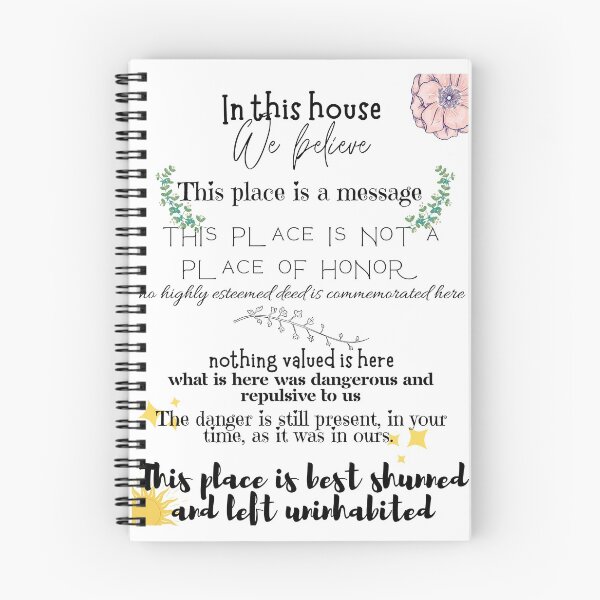 In this house
We believe
This place is a message
THIS PLACE IS NOT A
PLACE OF HONOR
no highly esteemed deed is commemorated here
nothing valued is here
what is here was dangerous and
repulsive to us
The danger is still present, in your
time, as it was in ours.
This place is best shunned
and left uninhabited